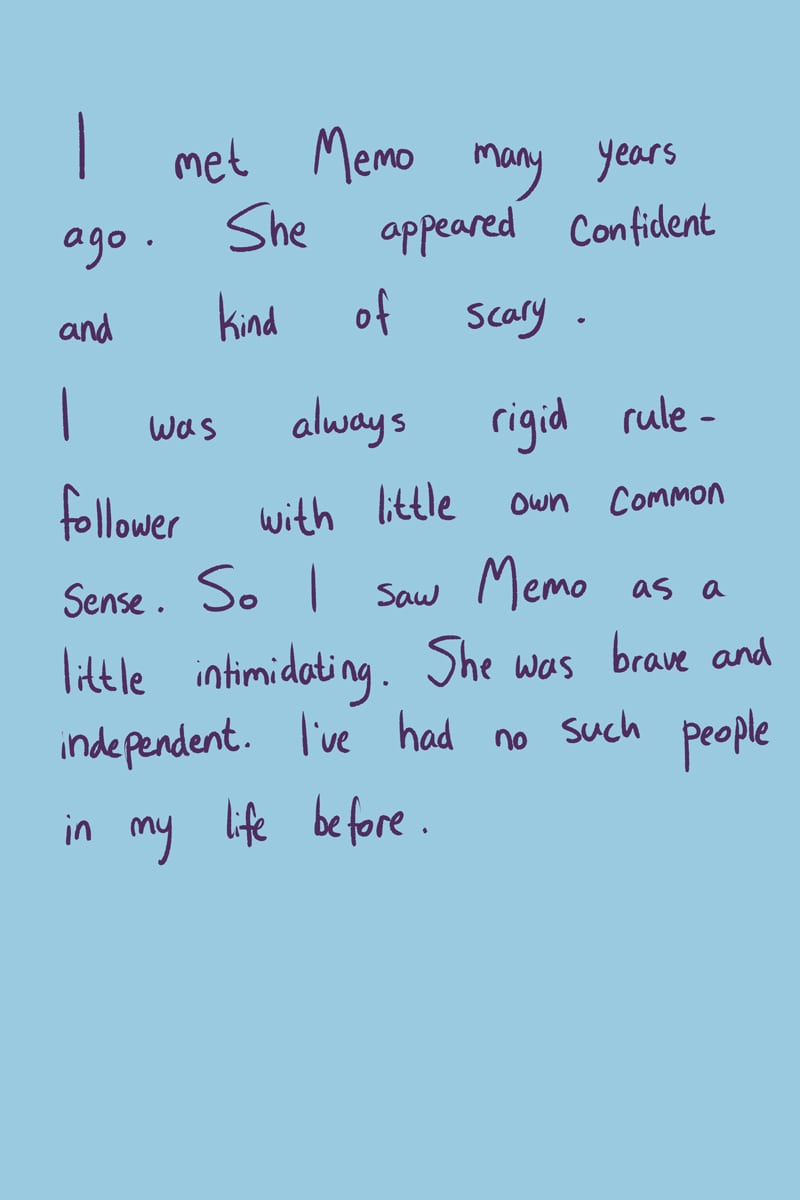 I met Memo many years
ago. She appeared confident
and kind of scary.
I was always rigid rule-
follower with little own common
sense. So I saw Memo as a
little intimidating. She was brave and
independent. I've had no such people
in my life before.